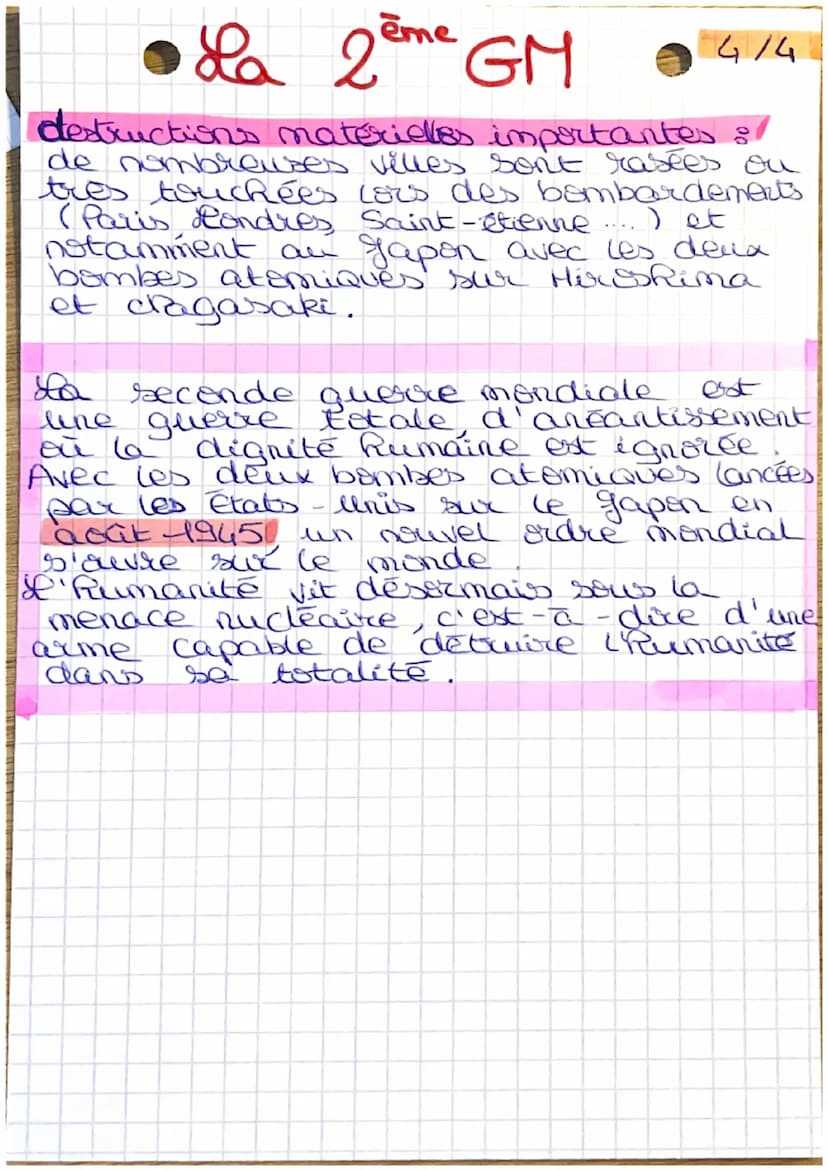 La 2ème GM
4/4
destructions matérielles importantes :
de nombreuses villes sont rasées ou
très touchées lors des bombardements
(Paris, Londres, Saint-étienne ....) et
notamment au Japon avec les deux
bombes atomiques sur Hiroshima
et Nagasaki.
La seconde guerre mondiale est
une guerre totale, d'anéantissement
où la dignité humaine est ignorée.
Avec les deux bombes atomiques lancées
par les Etats-Unis sur le Japon en
août 1945 un nouvel ordre mondial
s'ouvre sur le monde.
L'humanité vit désormais sous la
menace nucléaire, c'est-à-dire d'une
arme capable de détruire l'humanité
dans sa totalité.